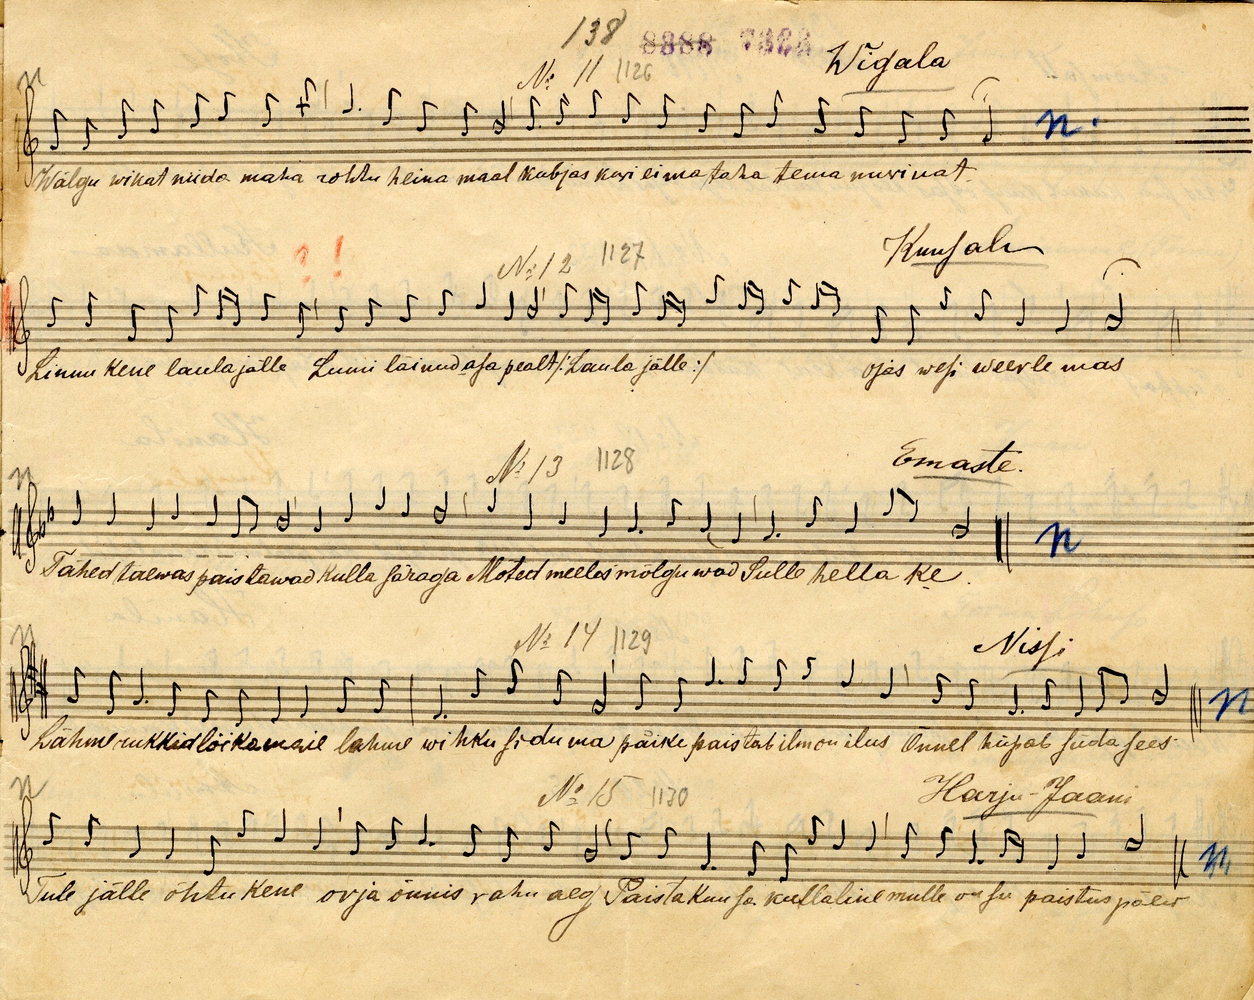 138 8388 7323
№ 11 1126 Wigala
n
n.
Wälgu wikat niida maha rohtu heina maal kubjas kuri ei ma taha tema nurinat
№ 12 1127 Kuusalu
? !
Linnu kene laula jälle Lumi läinud asa pealt /: Laula jälle :/ ojas wesi weerle mas
№ 13 1128 Emaste.
n
n
Tähed taewas paistawad kulla säraga Moted meeles mölguwad Sulle hella ke.
№ 14 1129 Nissi
n
n
Lähme rukkid löikamaie lahme wihku siduma päike paistab ilmon ilus Önnel hüpab süda sees
№ 15 1130 Harju-Jaani
n
n
Tule jälle öhtu kene orja önnis rahu aeg Paista kuu sa kullaline mulle on su paistus päew